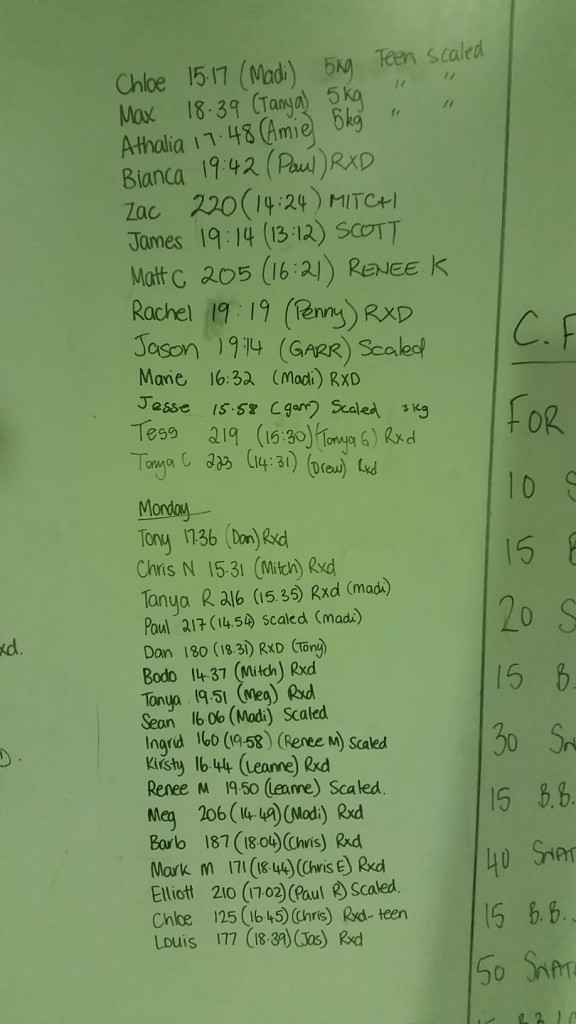 Chloe 15.17 (Madi) 5kg Teen scaled
Max 18.39 (Tanya) 5kg " "
Athalia 17.48 (Amie) 5kg " "
Bianca 19:42 (Paul) RXD
Zac 220 (14:24) MITCH
James 19:14 (13:12) SCOTT
Matt C 205 (16:21) RENEE K
Rachel 19:19 (Penny) RXD
Jason 19:14 (GARR) Scaled
Marie 16:32 (Madi) RXD
Jesse 15.58 (garr) Scaled 3kg
Tess 219 (15:30) (Tonya G) Rxd
Tonya C 223 (14:31) (Drew) Rxd
Monday
Tony 17.36 (Dan) Rxd
Chris N 15.31 (Mitch) Rxd
Tanya R 216 (15.35) Rxd (madi)
Paul 217 (14.54) scaled (madi)
Dan 180 (18.31) RXD (Tony)
Bodo 14.37 (Mitch) Rxd
Tanya 19.51 (Meg) Rxd
Sean 16.06 (Madi) Scaled
Ingrid 160 (19.58) (Renee M) Scaled
Kirsty 16.44 (Leanne) Rxd
Renee M 19.50 (Leanne) Scaled.
Meg 206 (14.49) (Madi) Rxd
Barb 187 (18.04) (Chris) Rxd
Mark m 171 (18.44) (Chris E) Rxd
Elliott 210 (17.02) (Paul R) Scaled.
Chloe 125 (16.45) (Chris) Rxd-teen
Louis 177 (18.39) (Jas) Rxd
xd.
D.
C.F
FOR
10 S
15 B
20 S
15 B.
30 SN
15 B.B.
40 SNAT
15 B.B.
50 SNAT